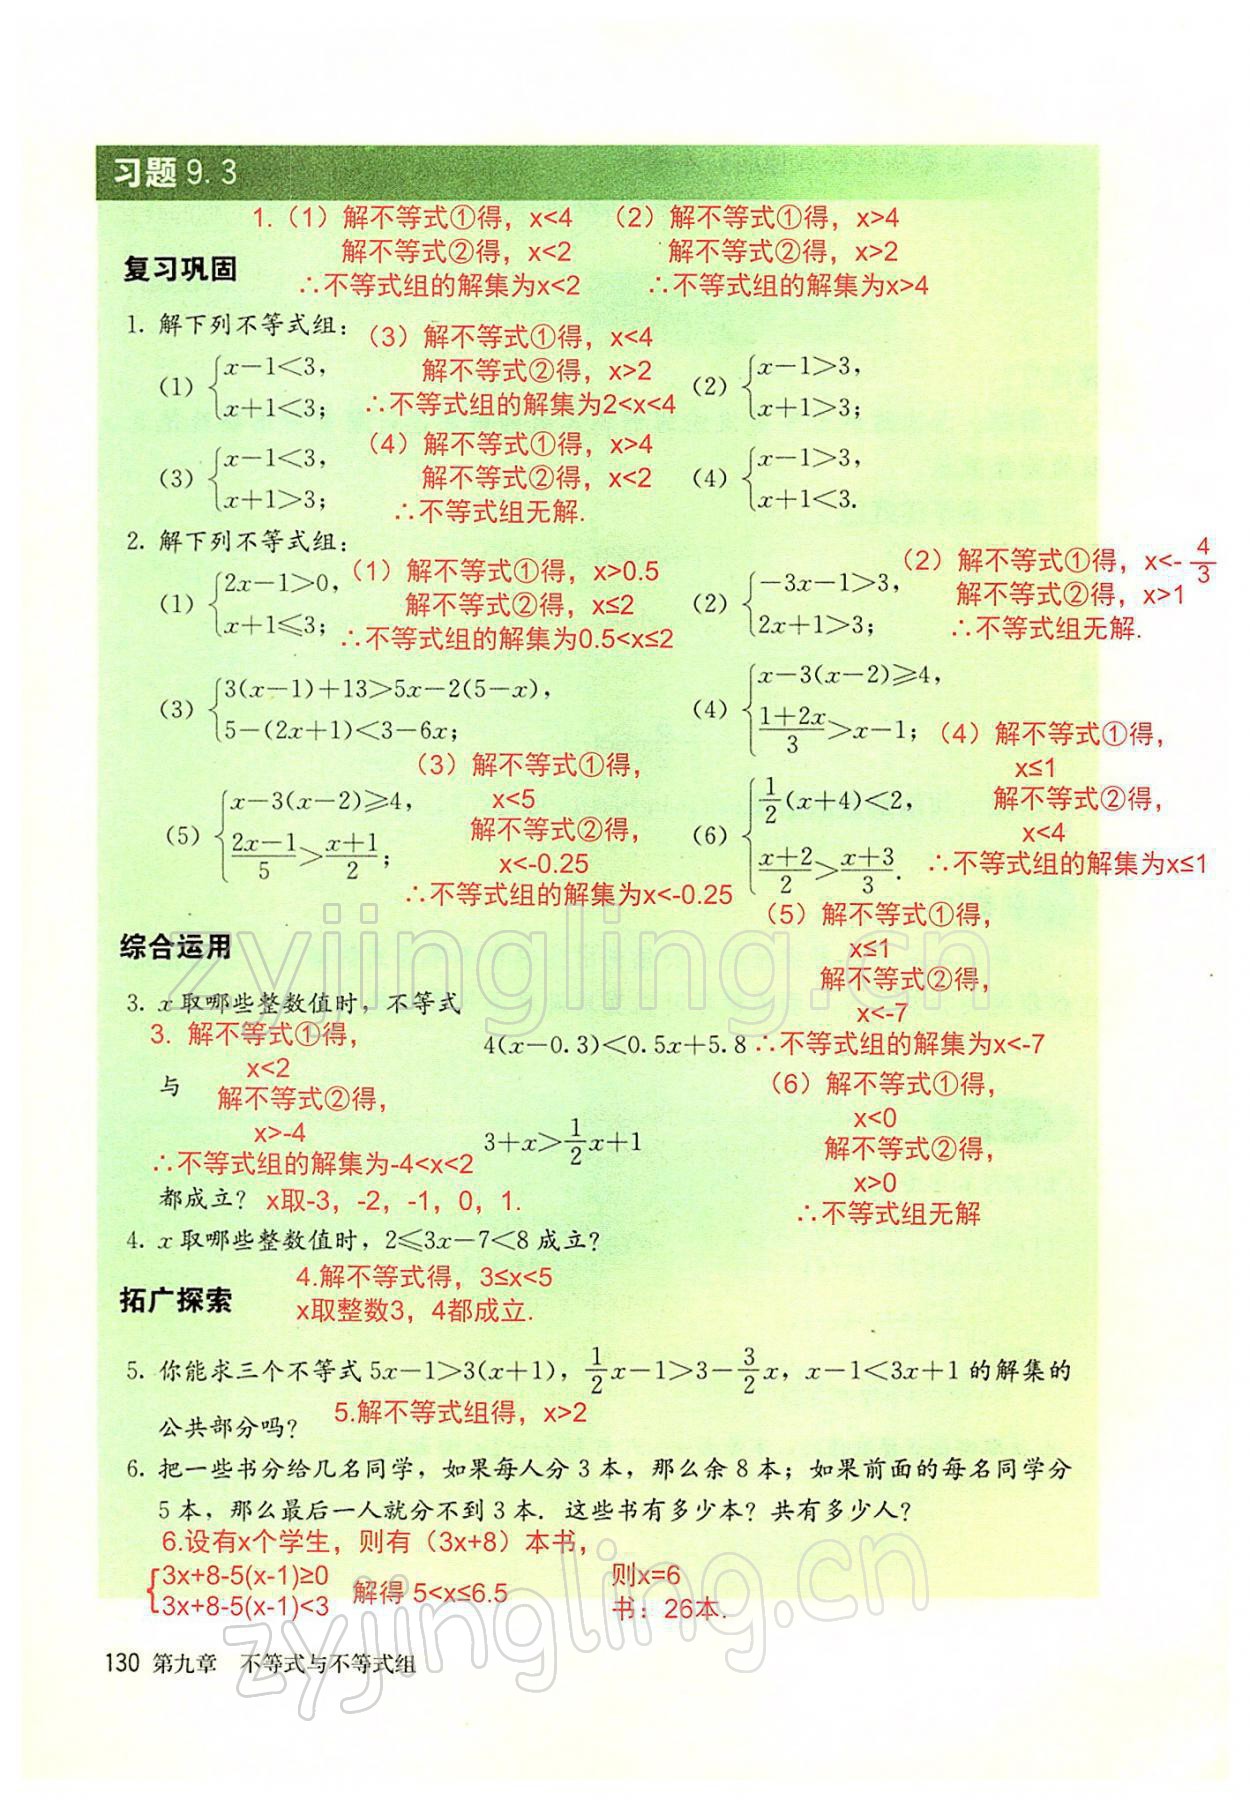 习题 9.3
1.（1）解不等式①得，x<4 （2）解不等式①得，x>4
解不等式②得，x<2 解不等式②得，x>2
复习巩固
∴不等式组的解集为x<2 ∴不等式组的解集为x>4
1. 解下列不等式组:
（3）解不等式①得，x<4
解不等式②得，x>2
∴不等式组的解集为2<x<4
(1) {x-1<3,
x+1<3;
(2) {x-1>3,
x+1>3;
（4）解不等式①得，x>4
解不等式②得，x<2
∴不等式组无解.
(3) {x-1<3,
x+1>3;
(4) {x-1>3,
x+1<3.
2. 解下列不等式组:
(1) {2x-1>0,
x+1≤3;
（1）解不等式①得，x>0.5
解不等式②得，x≤2
∴不等式组的解集为0.5<x≤2
(2) {-3x-1>3,
2x+1>3;
（2）解不等式①得，x<-4/3
解不等式②得，x>1
∴不等式组无解.
(3) {3(x-1)+13>5x-2(5-x),
5-(2x+1)<3-6x;
(4) {x-3(x-2)≥4,
(1+2x)/3>x-1;
（4）解不等式①得，
x≤1
解不等式②得，
x<4
∴不等式组的解集为x≤1
（3）解不等式①得，
x<5
解不等式②得，
x<-0.25
∴不等式组的解集为x<-0.25
(5) {x-3(x-2)≥4,
(2x-1)/5>(x+1)/2;
(6) {1/2(x+4)<2,
(x+2)/2>(x+3)/3.
（5）解不等式①得，
x≤1
解不等式②得，
x<-7
∴不等式组的解集为x<-7
综合运用
3. x取哪些整数值时，不等式
4(x-0.3)<0.5x+5.8
与
3+x>1/2x+1
3. 解不等式①得，
x<2
解不等式②得，
x>-4
∴不等式组的解集为-4<x<2
（6）解不等式①得，
x<0
解不等式②得，
x>0
∴不等式组无解
都成立? x取-3，-2，-1，0，1.
4. x取哪些整数值时，2≤3x-7<8成立?
4.解不等式得，3≤x<5
x取整数3，4都成立.
拓广探索
5. 你能求三个不等式5x-1>3(x+1)，1/2x-1>3-3/2x，x-1<3x+1的解集的
公共部分吗?
5.解不等式组得，x>2
6. 把一些书分给几名同学，如果每人分3本，那么余8本；如果前面的每名同学分
5本，那么最后一人就分不到3本. 这些书有多少本? 共有多少人?
6.设有x个学生，则有（3x+8）本书，
{3x+8-5(x-1)≥0
3x+8-5(x-1)<3
解得 5<x≤6.5
则x=6
书：26本.
130 第九章 不等式与不等式组
zyjingling.cn
zyjingling.cn